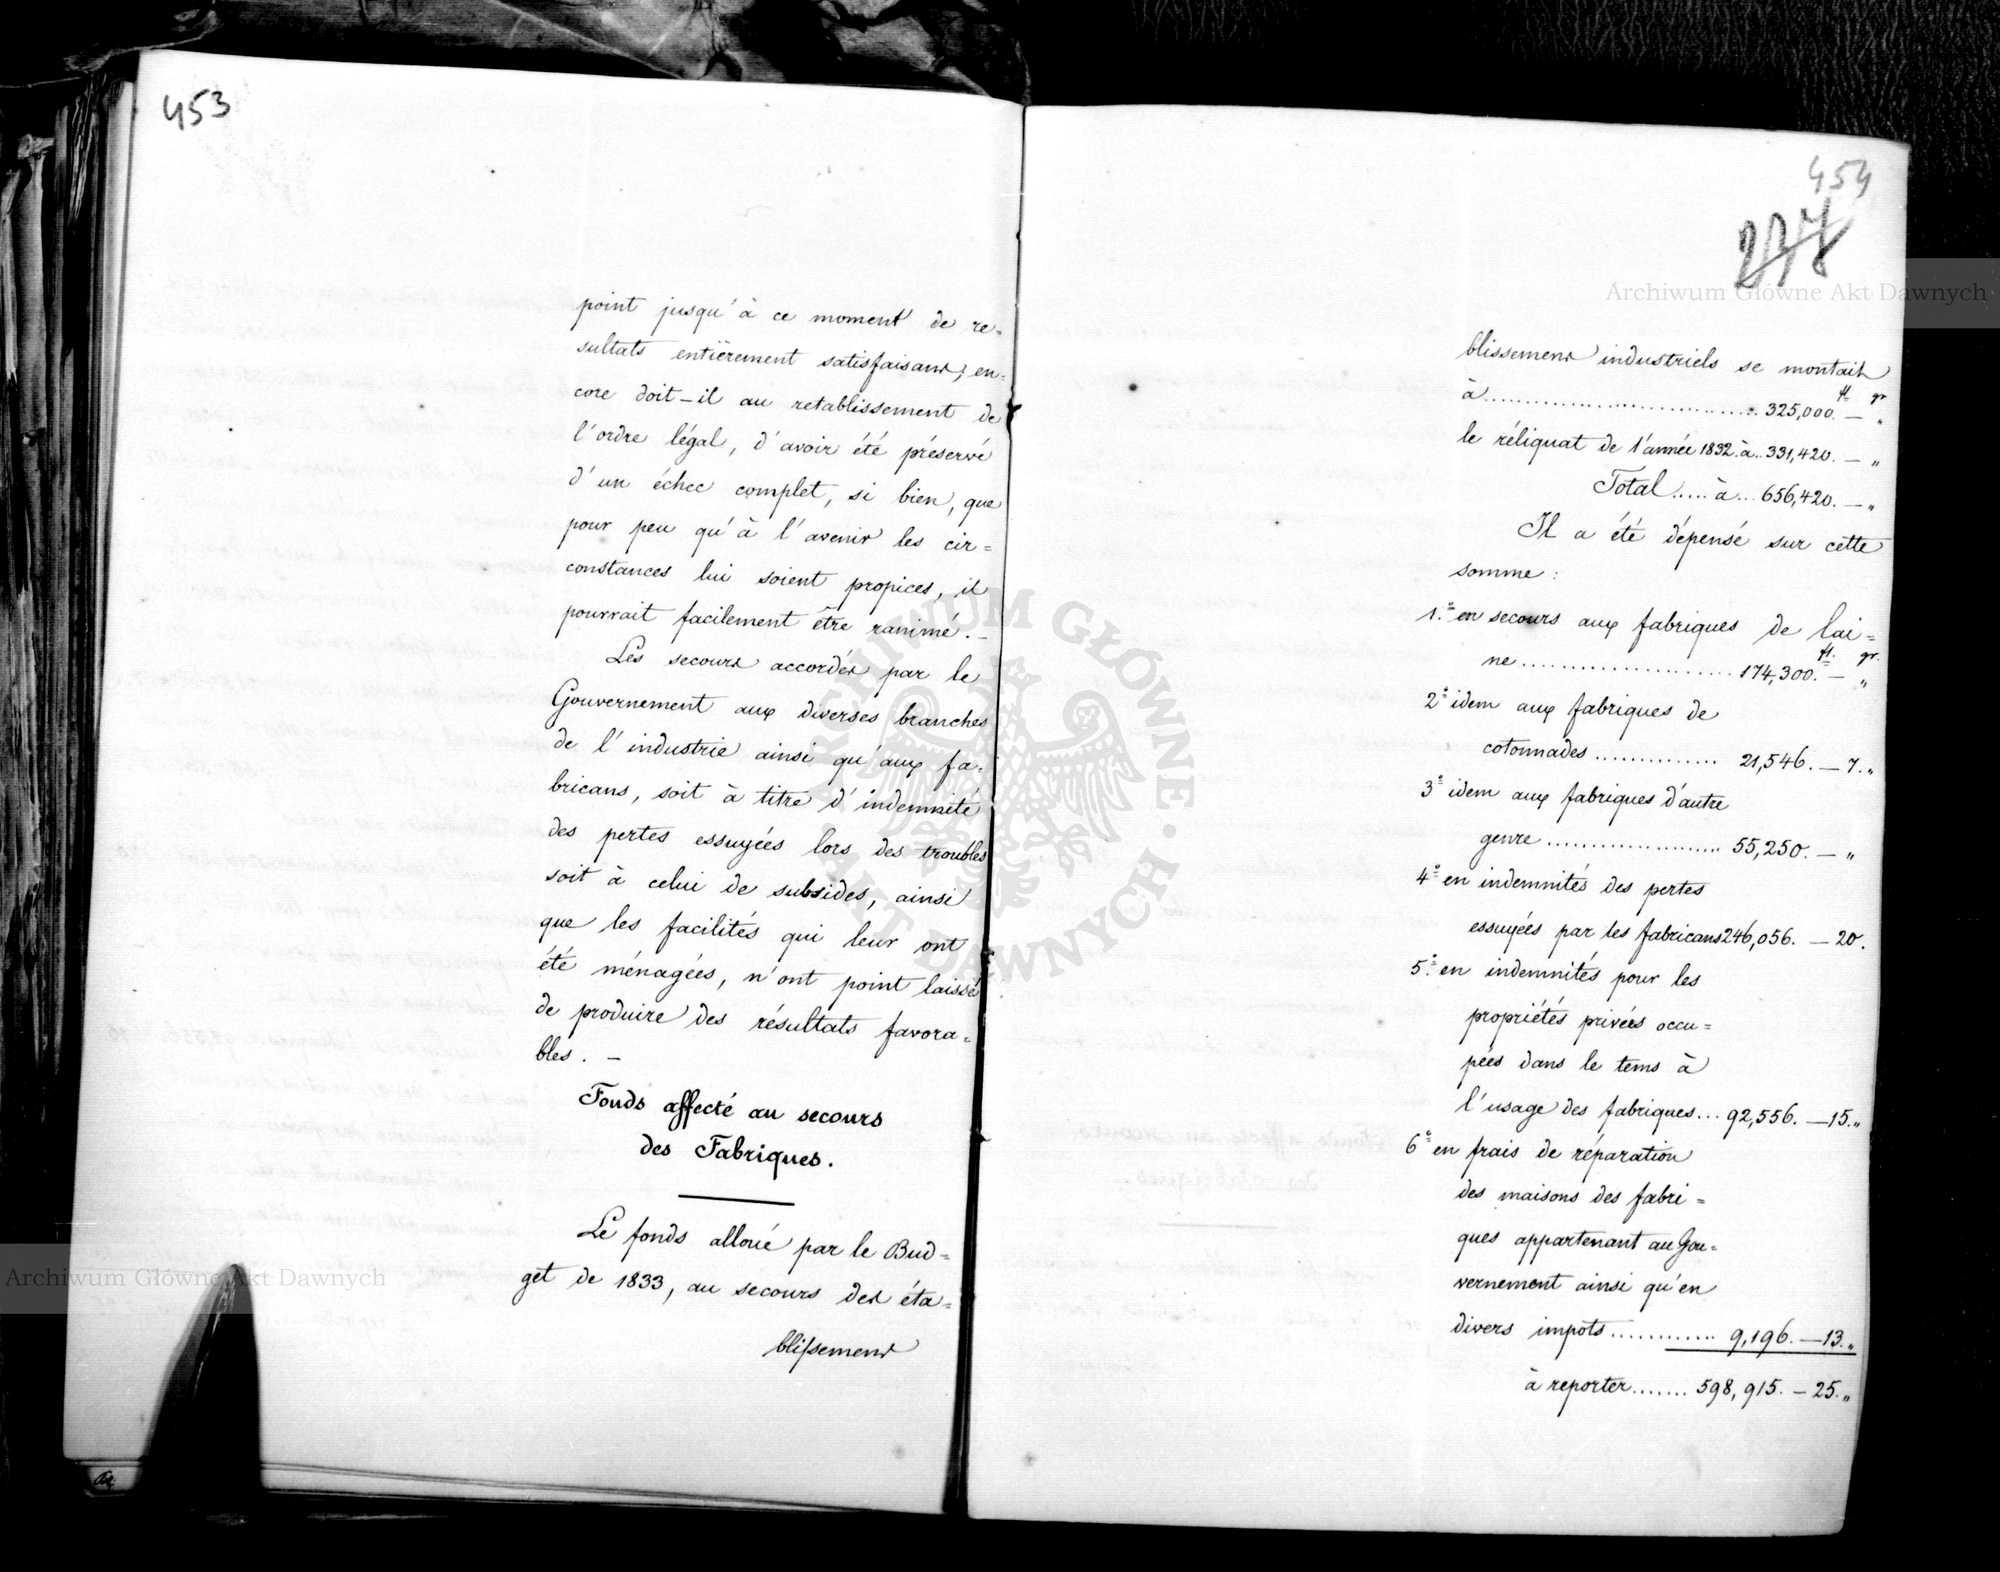 453
point jusqu'à ce moment de re=
sultats entièrement satisfaisans; en=
core doit-il au retablissement de
l'ordre légal, d'avoir été préservé
d'un échec complet, si bien, que
pour peu qu'à l'avenir les cir=
constances lui soient propices, il
pourrait facilement être ranimé. –
Les secours accordés par le
Gouvernement aux diverses branches
de l'industrie ainsi qu'aux fa=
bricans, soit à titre d'indemnité
des pertes essuyées lors des troubles
soit à celui de subsides, ainsi
que les facilités qui leur ont
été ménagées, n'ont point laissé
de produire des résultats favora=
bles. –
Fonds affecté au secours
des Fabriques.
Le fonds alloué par le Bud=
get de 1833, au secours des éta=
blissemens
454
237
blissemens industriels se montait
fl. gr.
à .......... 325,000. — "
le réliquat de l'année 1832. à .. 331,420. — "
Total ..... à ... 656,420. — "
Il a été dépensé sur cette
somme :
1.° en secours aux fabriques de lai=
fl. gr.
ne .......... 174,300. — "
2° idem aux fabriques de
cotonnades .......... 21,546. — 7. "
3° idem aux fabriques d'autre
genre .......... 55,250. — "
4° en indemnités des pertes
essuyées par les fabricans 246,056. — 20.
5.° en indemnités pour les
propriétés privées occu=
pées dans le tems à
l'usage des fabriques ... 92,556. — 15. "
6° en frais de réparation
des maisons des fabri=
ques appartenant au Gou=
vernement ainsi qu'en
divers impots .......... 9,196. — 13. "
à reporter ....... 598,915. — 25. "
Archiwum Główne Akt Dawnych
Archiwum Główne Akt Dawnych
ARCHIWUM GŁÓWNE · AKT DAWNYCH ·